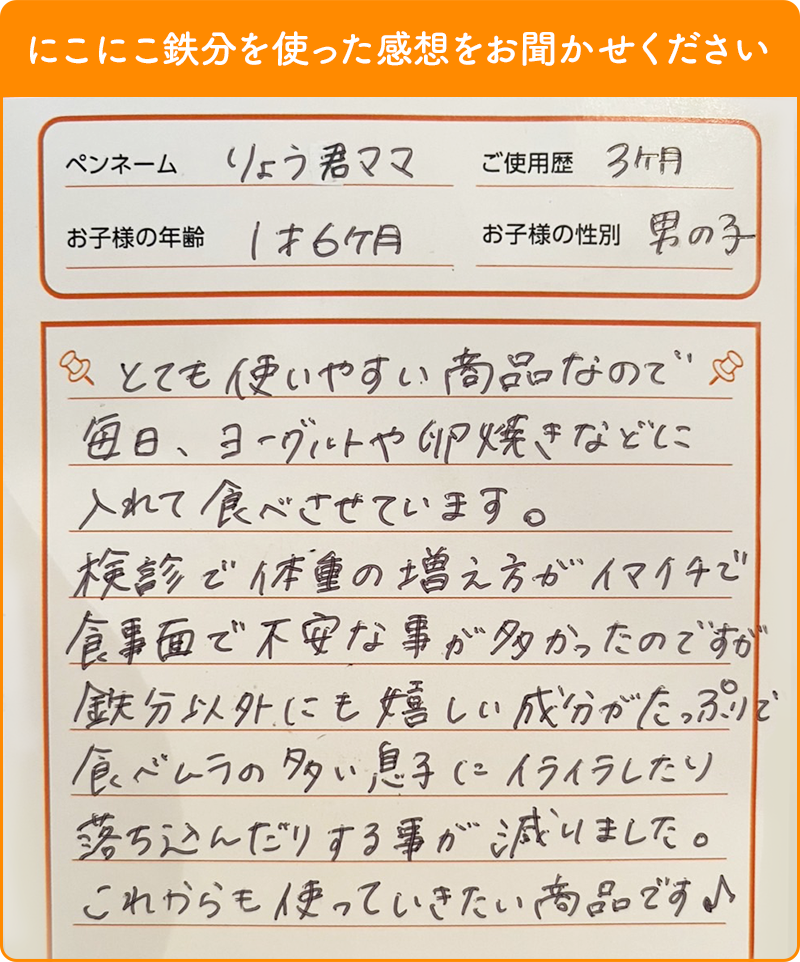 にこにこ鉄分を使った感想をお聞かせください
ペンネーム りょう君ママ ご使用歴 3ケ月
お子様の年齢 1才6ケ月 お子様の性別 男の子
とても使いやすい商品なので
毎日、ヨーグルトや卵焼きなどに
入れて食べさせています。
検診で体重の増え方がイマイチで
食事面で不安な事が多かったのですが
鉄分以外にも嬉しい成分がたっぷりで
食べムラの多い息子にイライラしたり
落ち込んだりする事が減りました。
これからも使っていきたい商品です♪